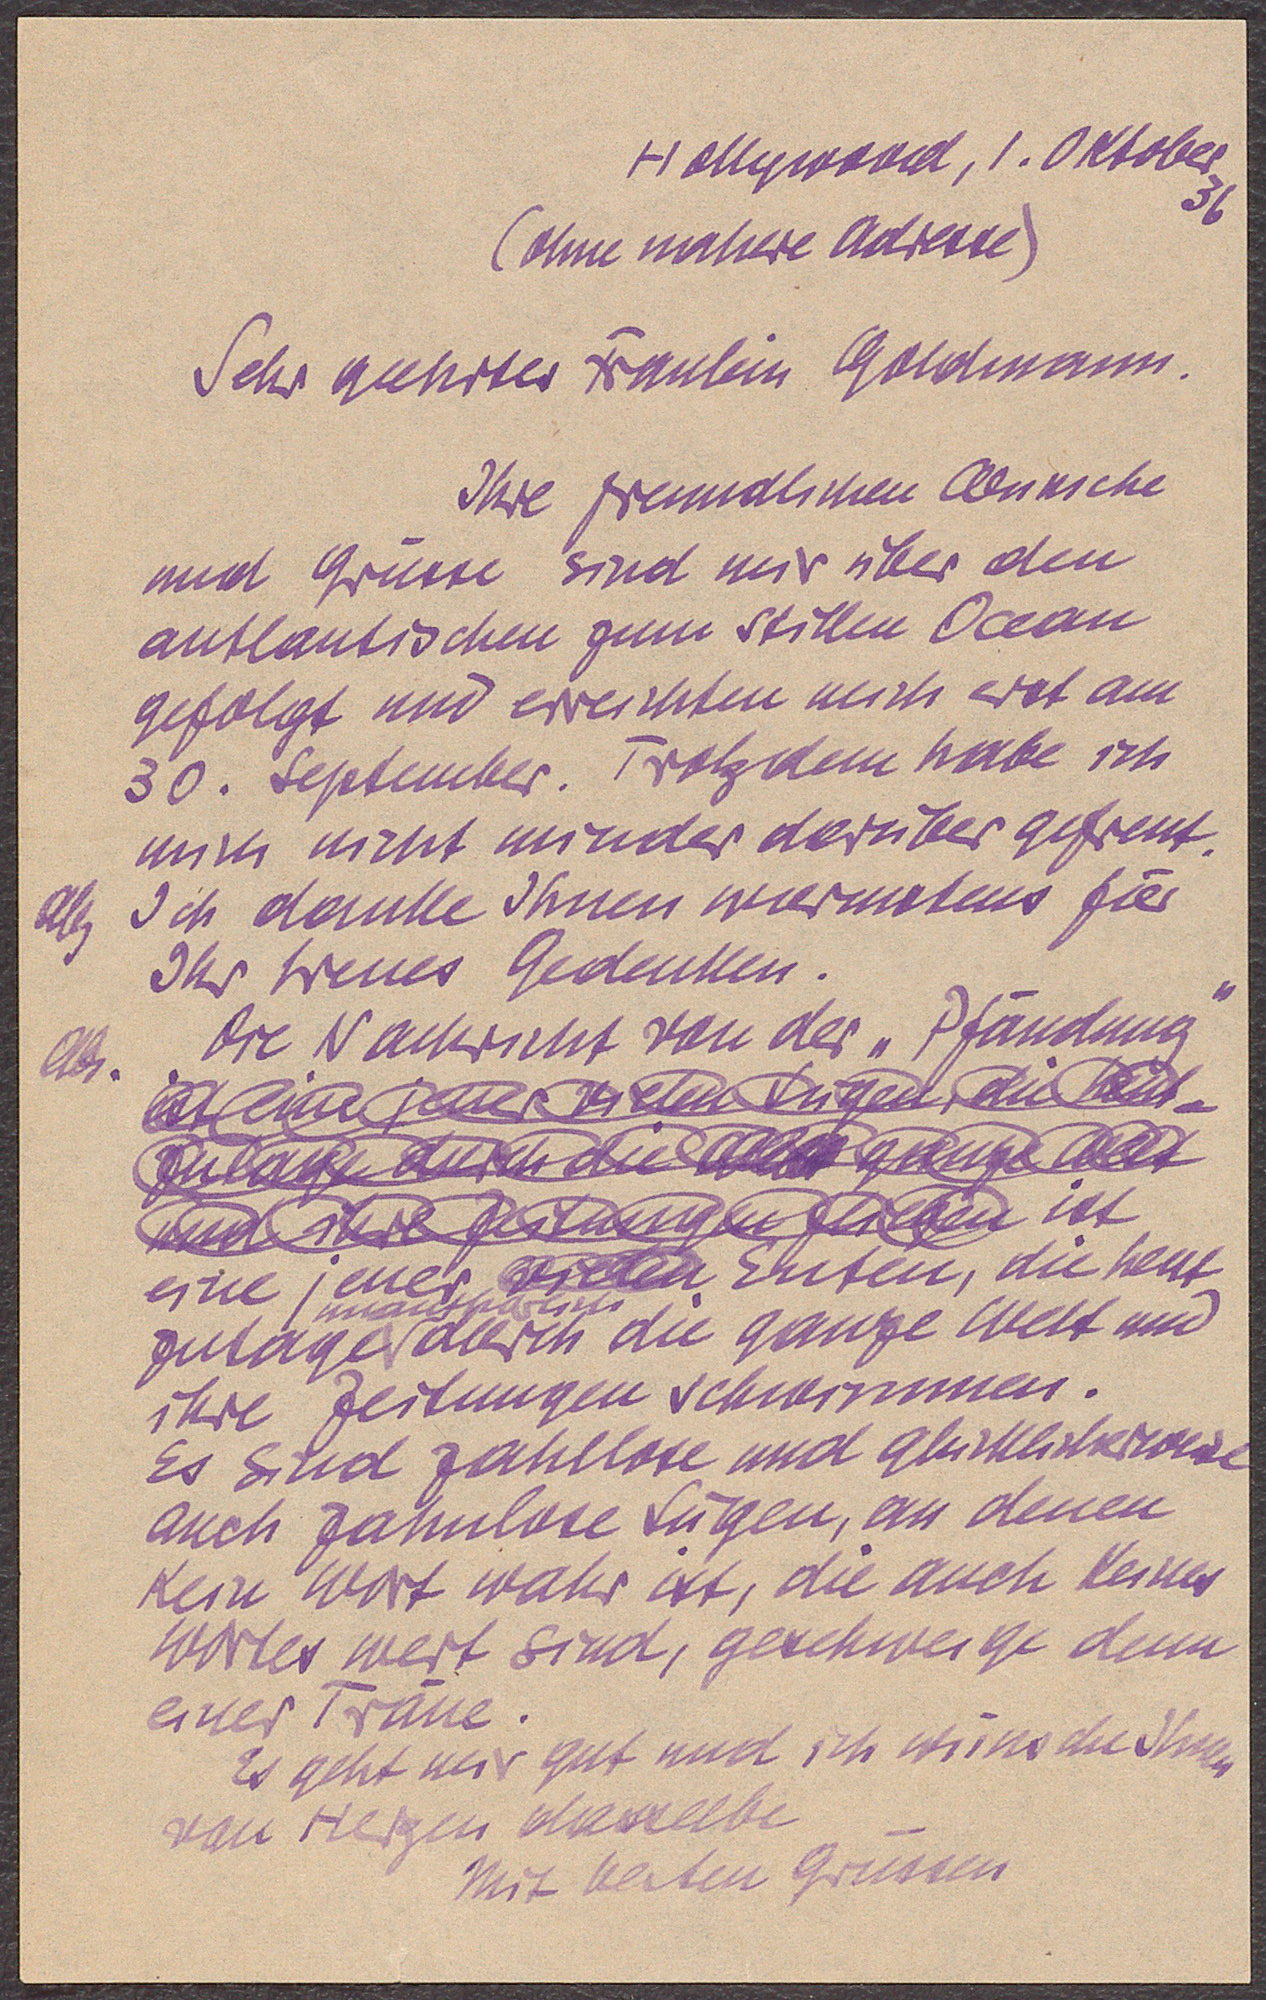 Hollywood, 1. Oktober
36
(ohne nähere Adresse)
Sehr geehrtes Fräulein Goldmann.
Ihre freundlichen Wünsche
und Grüsse sind mir über den
antlantischen zum stillen Ocean
gefolgt und erreichten mich erst am
30. September. Trotzdem habe ich
mich nicht minder darüber gefreut.
Abs Ich danke Ihnen wärmstens für
Ihr treues Gedenken.
Abs. Die Nachricht von der „Pfändung"
ist eine jener vielen Lügen, die heut-
zutage durch die ganze Welt
und ihre Zeitungen ist
eine jener vielen Enten, die heut
unaufhörlich
zutage durch die ganze Welt und
ihre Zeitungen schwimmen.
Es sind zahllose und glücklicherweise
auch zahnlose Lügen, an denen
kein Wort wahr ist, die auch keines
Wortes wert sind, geschweige denn
einer Träne.
Es geht mir gut und ich wünsche Ihnen
von Herzen dasselbe
Mit besten Grüssen